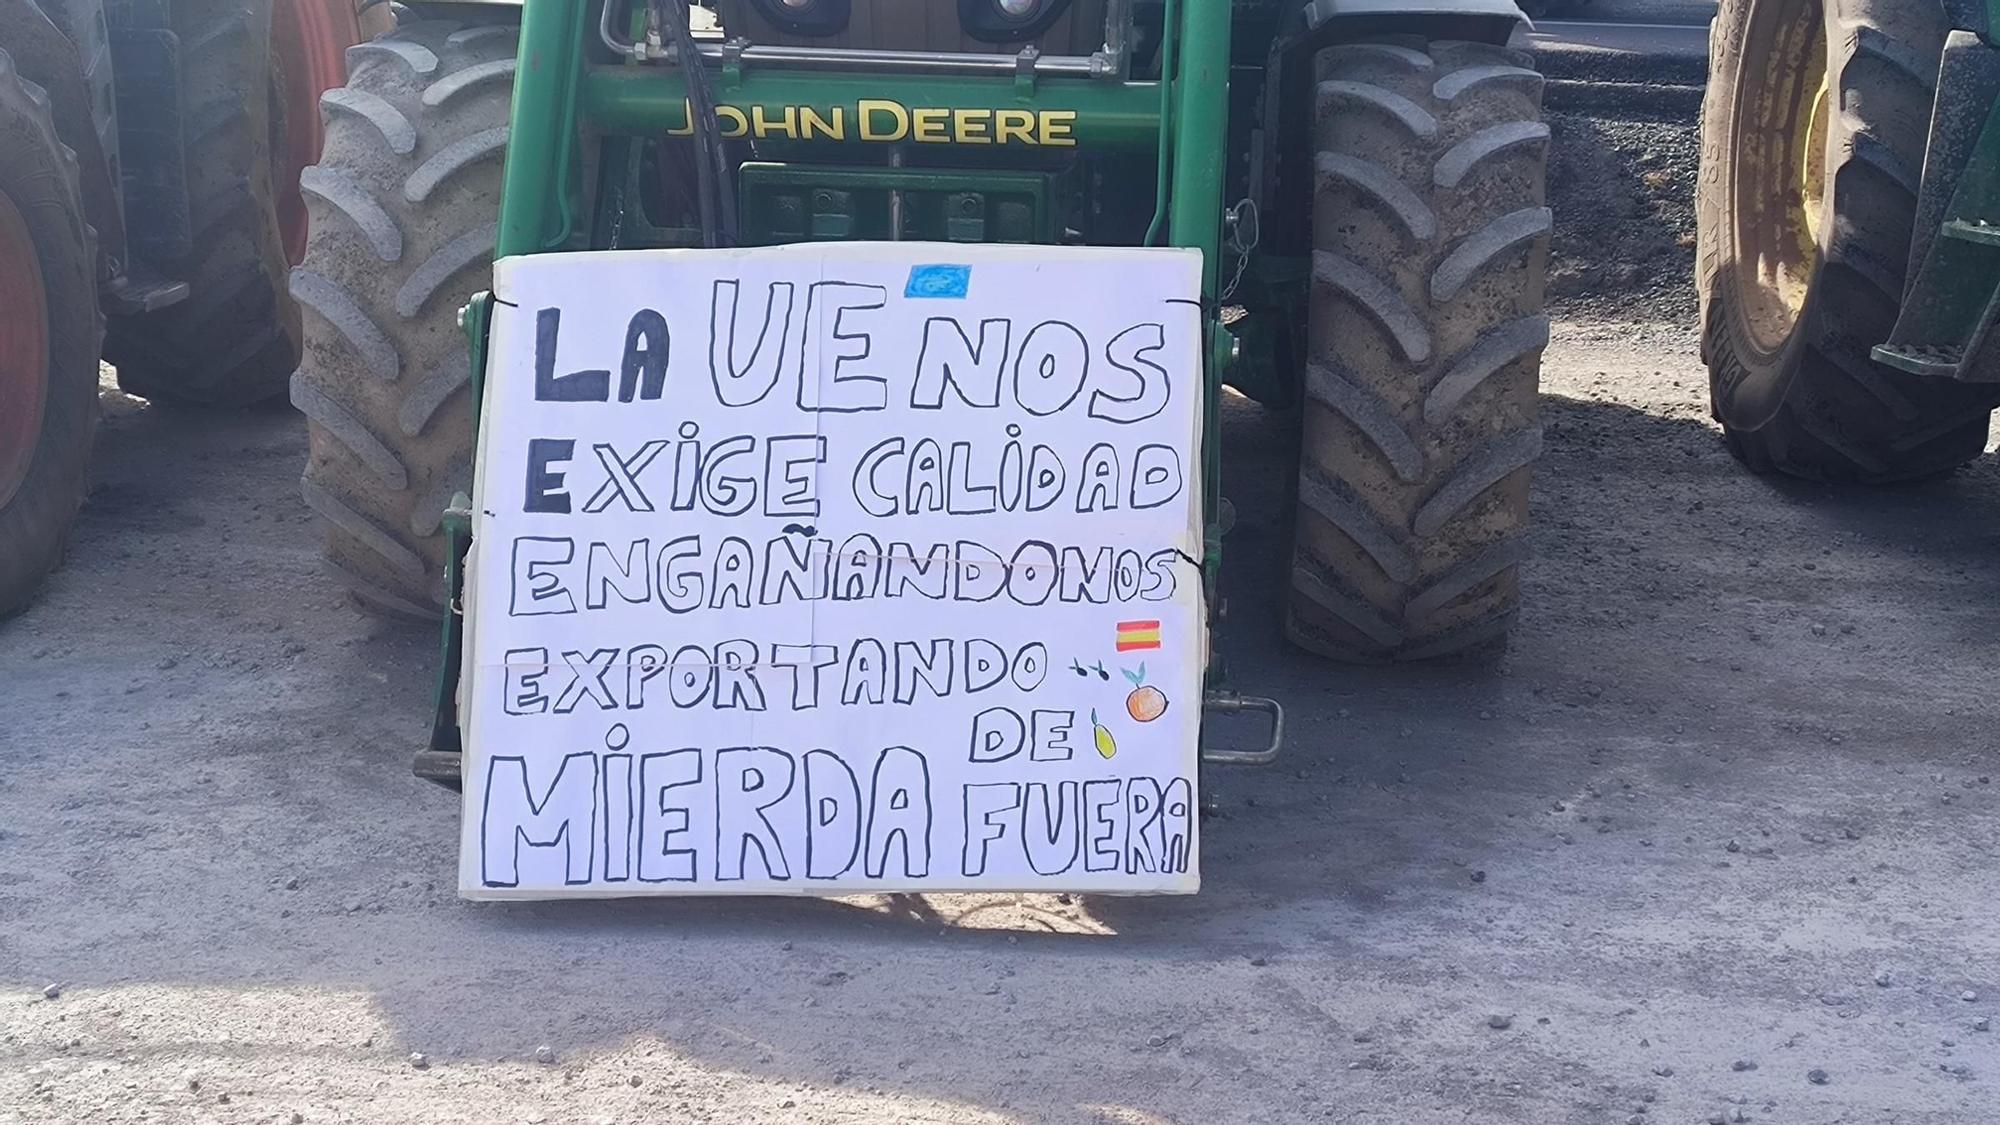 JOHN DEERE
LA UE NOS
EXIGE CALIDAD
ENGAÑANDONOS
EXPORTANDO
DE
MIERDA FUERA